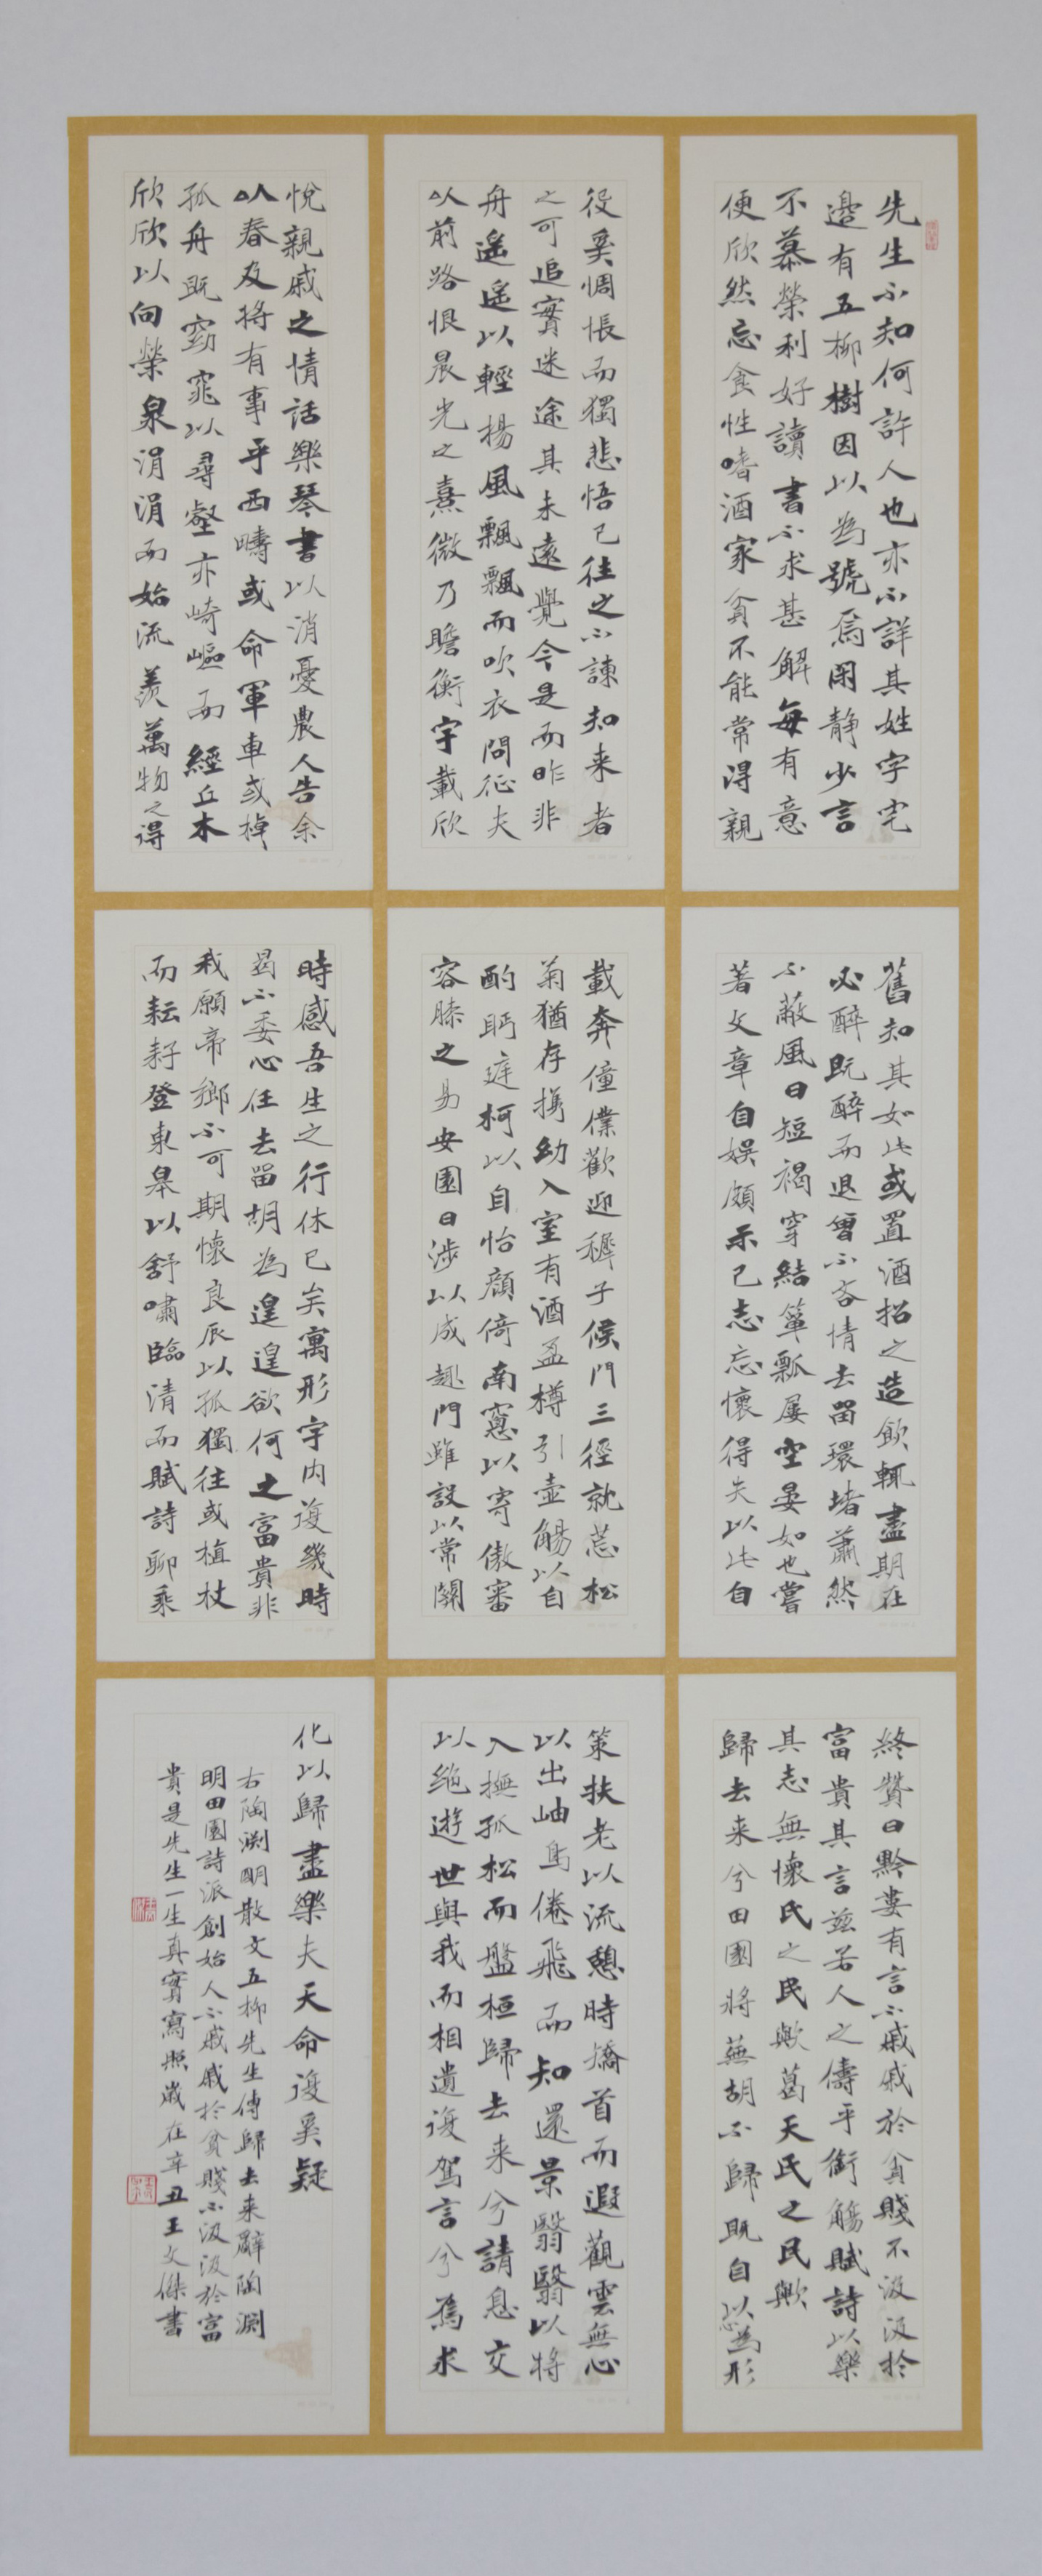 先生不知何許人也亦不詳其姓字宅
邊有五柳樹因以為號焉閑靜少言
不慕榮利好讀書不求甚解每有意
便欣然忘食性嗜酒家貧不能常得親
舊知其如此或置酒招之造飲輒盡期在
必醉既醉而退曾不吝情去留環堵蕭然
不蔽風日短褐穿結簞瓢屢空晏如也嘗
著文章自娛頗示己志忘懷得失以此自
終贊曰黔婁有言不戚戚於貧賤不汲汲於
富貴其言茲若人之儔乎銜觴賦詩以樂
其志無懷氏之民歟葛天氏之民歟
歸去來兮田園將蕪胡不歸既自以心為形
役奚惆悵而獨悲悟已往之不諫知来者
之可追實迷途其未遠覺今是而昨非
舟遙遙以輕揚風飄飄而吹衣問征夫
以前路恨晨光之熹微乃瞻衡宇載欣
載奔僮僕歡迎稚子候門三徑就荒松
菊猶存携幼入室有酒盈樽引壺觴以自
酌眄庭柯以自怡顏倚南窗以寄傲審
容膝之易安園日涉以成趣門雖設以常關
策扶老以流憩時矯首而遐觀雲無心
以出岫鳥倦飛而知還景翳翳以將
入撫孤松而盤桓歸去来兮請息交
以絕遊世與我而相遺復駕言兮焉求
悅親戚之情話樂琴書以消憂農人告余
以春及將有事乎西疇或命軍車或棹
孤舟既窈窕以尋壑亦崎嶇而經丘木
欣欣以向榮泉涓涓而始流羨萬物之得
時感吾生之行休已矣寓形宇内復幾時
曷不委心任去留胡為遑遑欲何之富貴非
我願帝鄉不可期懷良辰以孤獨往或植杖
而耘耔登東皋以舒嘯臨清而賦詩聊乘
化以歸盡樂夫天命復奚疑
右陶淵明散文五柳先生傳歸去来辭陶淵
明田園詩派創始人不戚戚於貧賤不汲汲於富
貴是先生一生真實寫照歲在辛丑王文傑書